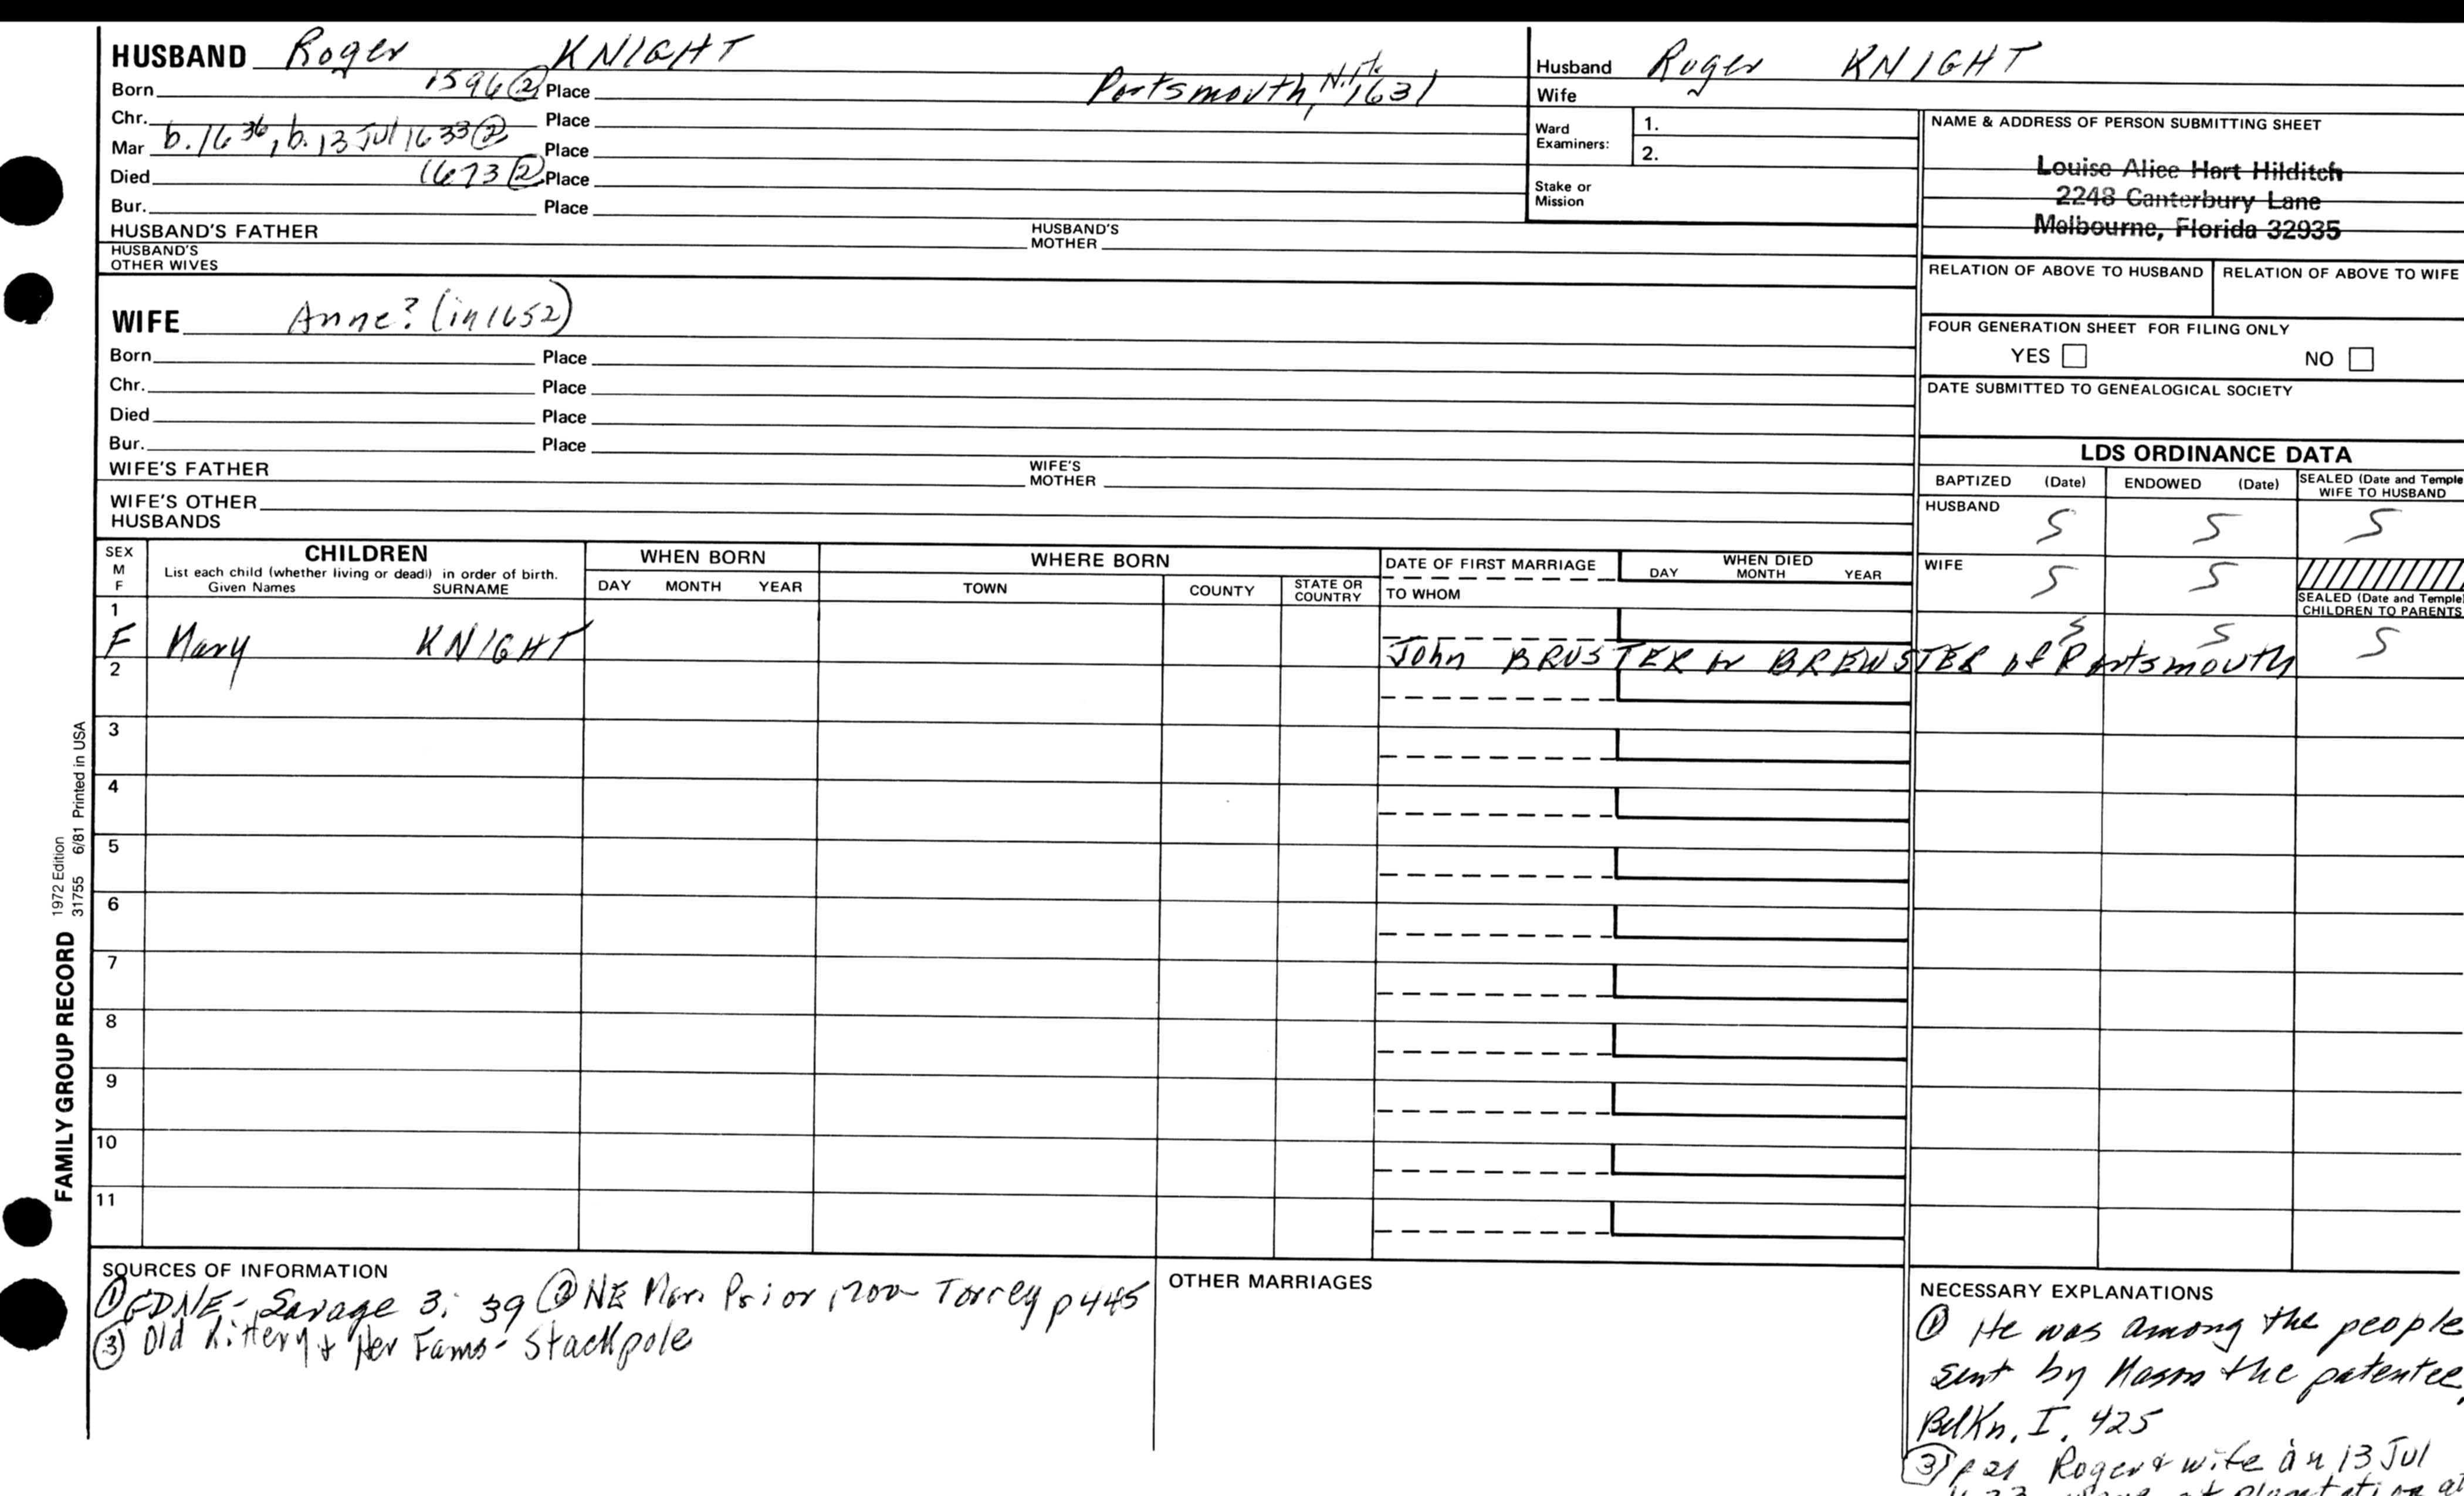 HUSBAND Roger KNIGHT
Born 1596 ② Place Portsmouth, N.H. 1631
Chr. Place
Mar b. 1636, b. 13 Jul 1633 ② Place
Died 1673 ② Place
Bur. Place
HUSBAND'S FATHER HUSBAND'S MOTHER
HUSBAND'S OTHER WIVES
WIFE Anne? (in 1652)
Born Place
Chr. Place
Died Place
Bur. Place
WIFE'S FATHER WIFE'S MOTHER
WIFE'S OTHER HUSBANDS
Husband Roger KNIGHT
Wife
Ward Examiners: 1.
2.
Stake or Mission
NAME & ADDRESS OF PERSON SUBMITTING SHEET
Louise Alice Hart Hilditch
2248 Canterbury Lane
Melbourne, Florida 32935
RELATION OF ABOVE TO HUSBAND RELATION OF ABOVE TO WIFE
FOUR GENERATION SHEET FOR FILING ONLY
YES NO
DATE SUBMITTED TO GENEALOGICAL SOCIETY
LDS ORDINANCE DATA
BAPTIZED (Date) ENDOWED (Date) SEALED (Date and Temple) WIFE TO HUSBAND
HUSBAND S S S
WIFE S S
SEALED (Date and Temple) CHILDREN TO PARENTS
SEX M F
CHILDREN
List each child (whether living or dead) in order of birth.
Given Names SURNAME
WHEN BORN
DAY MONTH YEAR
WHERE BORN
TOWN COUNTY STATE OR COUNTRY
DATE OF FIRST MARRIAGE
TO WHOM
WHEN DIED
DAY MONTH YEAR
1
F Mary KNIGHT John BRUSTER or BREWSTER of Portsmouth S S S
2
3
4
5
6
7
8
9
10
11
FAMILY GROUP RECORD 1972 Edition
31755 6/81 Printed in USA
SOURCES OF INFORMATION
① GDNE - Savage 3: 39 ② NE Mar. Prior 1700 - Torrey p 445
③ Old Kittery & Her Fams - Stackpole
OTHER MARRIAGES
NECESSARY EXPLANATIONS
① He was among the people
sent by Mason the patentee,
Belkn. I. 425
③ p 21 Roger & wife on 13 Jul